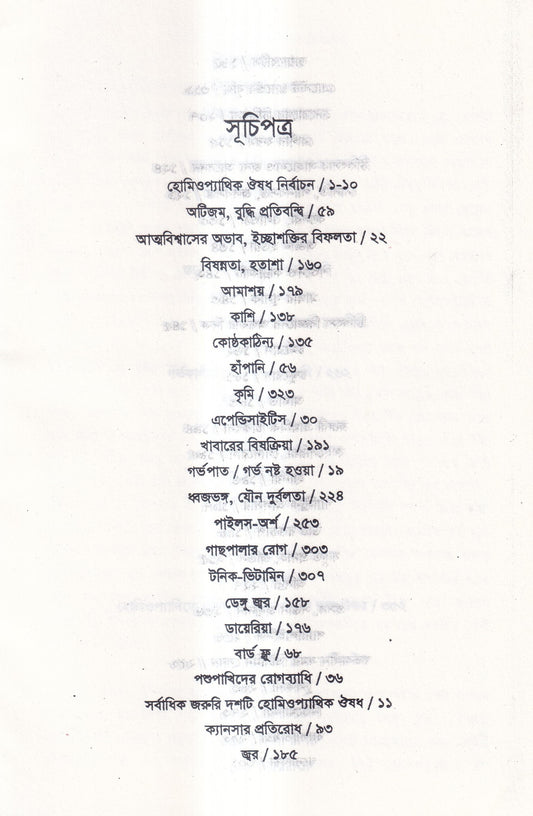 সূচিপত্র
হোমিওপ্যাথিক ঔষধ নির্বাচন / ১-১০
অটিজম, বুদ্ধি প্রতিবন্ধি / ৫৯
আত্মবিশ্বাসের অভাব, ইচ্ছাশক্তির বিফলতা / ২২
বিষন্নতা, হতাশা / ১৬০
আমাশয় / ১৭৯
কাশি / ১৩৮
কোষ্ঠকাঠিন্য / ১৩৫
হাঁপানি / ৫৬
কৃমি / ৩২৩
এপেন্ডিসাইটিস / ৩০
খাবারের বিষক্রিয়া / ১৯১
গর্ভপাত / গর্ভ নষ্ট হওয়া / ১৯
ধ্বজভঙ্গ, যৌন দুর্বলতা / ২২৪
পাইলস-অর্শ / ২৫৩
গাছপালার রোগ / ৩০৩
টনিক-ভিটামিন / ৩০৭
ডেঙ্গু জ্বর / ১৫৮
ডায়েরিয়া / ১৭৬
বার্ড ফ্লু / ৬৮
পশুপাখিদের রোগব্যাধি / ৩৬
সর্বাধিক জরুরি দশটি হোমিওপ্যাথিক ঔষধ / ১১
ক্যানসার প্রতিরোধ / ৯৩
জ্বর / ১৮৫